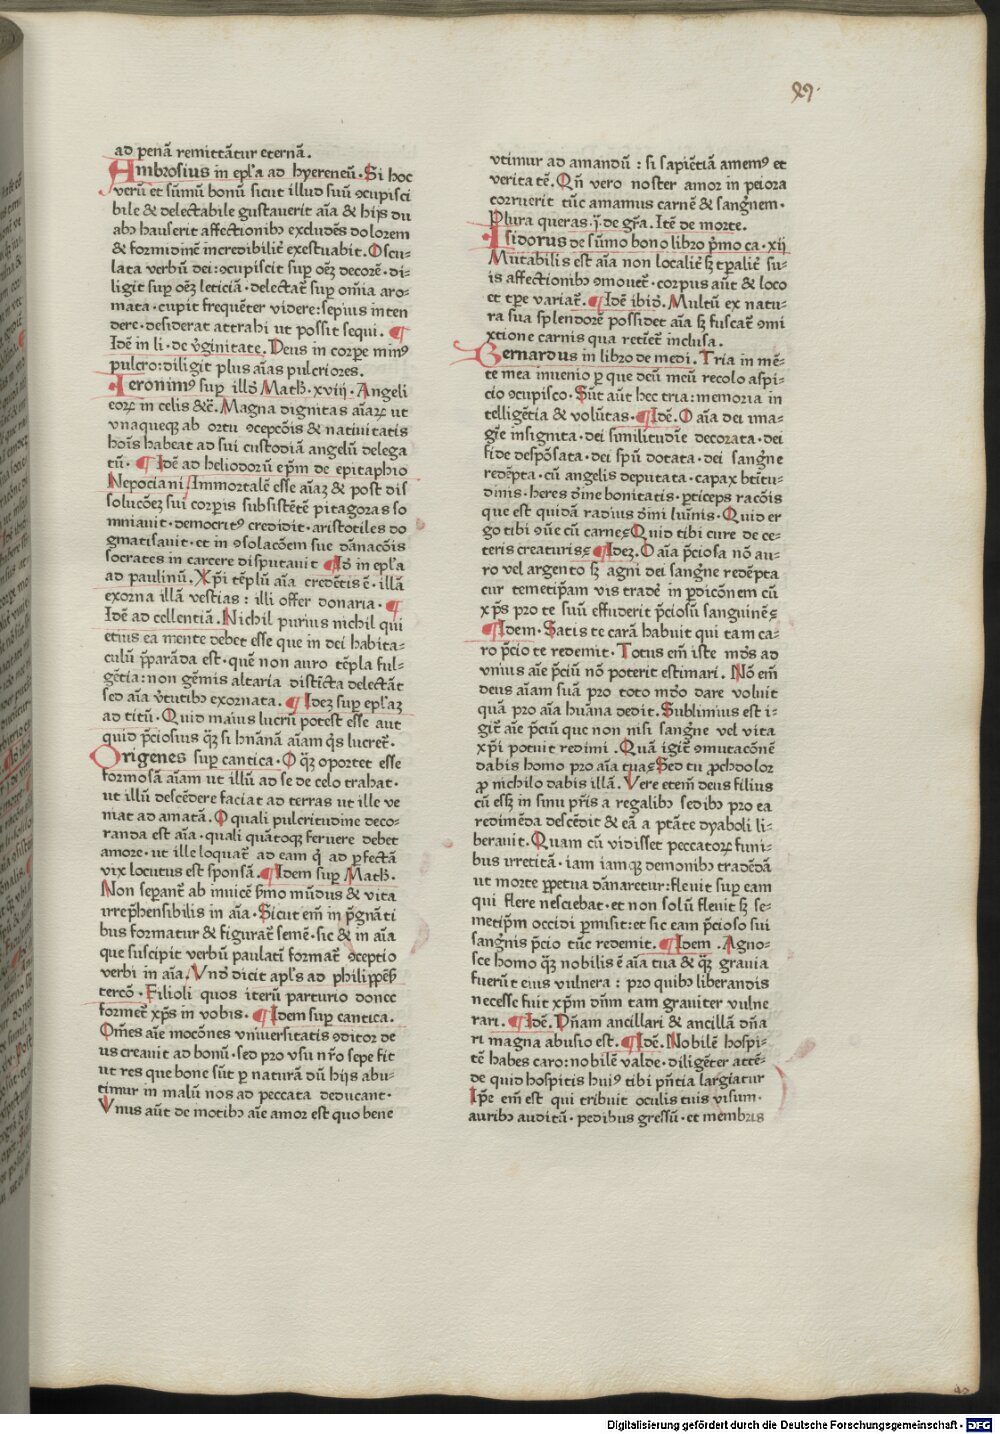 ad penā remittātur eternā.
Ambrosius in epl'a ad hyereneū. Si hoc
verū et sūmū bonū sicut illud suū ꝯcupisci
bile & delectabile gustauerit aīa & hijs du
abꝫ hauserit affectionibꝫ excludēs dolorem
& formidinē incredibilit̄ exestuabit. Oscu-
lata verbū dei: ꝯcupiscit sup oēꝫ decorē. di-
ligit sup oēꝫ leticiā. delectat̄ sup om̄ia aro-
mata. cupit frequēter videre: sepius inten
dere. desiderat attrahi ut possit sequi. ¶
Idē in li. de v̄ginitate. Deus in corpe minꝰ
pulcro: diligit plus aīas pulcriores.
Ieronimꝰ sup illō Math. xviij. Angeli
eoꝝ in celis &c̄. Magna dignitas aīaꝝ ut
vnaqueqꝫ ab ortu ꝯcepcōis & natiuitatis
hoīs habeat ad sui custodiā angelū delega
tū. ¶ Idē ad heliodorū ep̄m de epitaphio
Nepociani Immortalē esse aīaꝫ & post dis
solucōeꝫ sui corpis subsistētē pitagoras so
mniauit. democritꝰ credidit. aristotiles do
gmatisauit. et in ꝯsolacōem sue dānacōis
socrates in carcere disputauit ¶ Id̄ in epl'a
ad paulinū. Xp̄i tēplū aīa credētis ē. illā
exorna illā vestias: illi offer donaria. ¶
Idē ad cellentiā. Nichil purius nichil qui
etius ea mente debet esse que in dei habita-
culū p̄parāda est. quē non auro tēpla ful-
gētia: non gēmis altaria distīcta delectāt
sed aīa v̄tutibꝫ exornata. ¶ Ideꝫ sup epl'aꝫ
ad titū. Quid maius lucrū potest esse aut
quid p̄ciosius qꝫ̄ si hūanā aīam qͥs lucret̄.
Origenes sup cantica. O qꝫ̄ oportet esse
formosā aīam ut illū ad se de celo trahat.
ut illū descēdere faciat ad terras ut ille ve
niat ad amatā. O quali pulcritudine deco-
randa est aīa. quali quātoqꝫ feruere debet
amore. ut ille loquat̄ ad eam qͥ ad pfectā
vix locutus est sponsā. ¶ Idem sup Math.
Non sepant̄ ab inuicē ſ̄mo mūdus & vita
irrep̄hensibilis in aīa. Sicut em̄ in p̄gnāti
bus formatur & figurat̄ semē. sic & in aīa
que suscipit verbū paulati format̄ ꝯceptio
verbi in aīa. Vnd̄ dicit apl's ad philippēs̄
tercō. Filioli quos iterū parturio donec
formet̄ xp̄s in vobis. ¶ Idem sup cantica.
Om̄es aīe mocōnes vniuersitatis ꝯditor de
us creauit ad bonū. sed pro vsu nr̄o sepe fit
ut res que bone sūt p naturā dū hijs abu-
timur in malū nos ad peccata deducant.
Vnus aūt de motibꝫ aīe amor est quo bene
vtimur ad amandū: si sapiētiā amemꝰ et
veritatē. Qn̄ vero noster amor in peiora
corruerit tūc amamus carnē & sangnem.
Plura queras. j. de gr̄a. Itē de morte.
Isidorus de sūmo bono libro p̄mo ca. xij
Mutabilis est aīa non localit̄ sꝫ tpalit̄ su-
is affectionibꝫ ꝯmouet̄. corpus aūt & loco
et tpe variat̄. ¶ Idē ibid̄. Multū ex natu-
ra sua splendorē possidet aīa sꝫ fuscat̄ ꝯmi
xtione carnis qua retiet̄ inclusa.
Bernardus in libro de medi. Tria in mē-
te mea inuenio p que deū meū recolo aspi-
cio ꝯcupisco. Sūt aūt hec tria: memoria in
telligētia & volūtas. ¶ Idē. O aīa dei ima-
gīe insignita. dei similitudīe decorata. dei
fide despōsata. dei spū dotata. dei sangne
redēpta. cū angelis deputata. capax btītu-
dinis. heres dīne bonitatis. pticeps racōis
que est quidā radius dīni lumis. Quid er
go tibi ꝯūe cū carne? Quid tibi cure de ce-
teris creaturis? ¶ Ideꝫ. O aīa p̄ciosa nō au-
ro vel argento sꝫ agni dei sangne redēpta
cur temetip̄am vis tradē in pdicōnem cū
xp̄s pro te suū effuderit p̄ciosū sanguinē?
¶ Idem. Satis te carā habuit qui tam ca-
ro p̄cio te redemit. Totus em̄ iste mūds ad
vnius aīe p̄ciū nō poterit estimari. Nō em̄
deus aīam suā pro toto mūdo dare voluit
quā pro aīa hūana dedit. Sublimius est i-
git̄ aīe p̄ciū que non nisi sangne vel vita
xp̄i potuit redimi. Quā igit̄ ꝯmutacōnē
dabis homo pro aīa tua? Sed tu ꝓchdolor
ꝓ nichilo dabis illā. Vere etem̄ deus filius
cū essꝫ in sinu pr̄is a regalibꝫ sedibꝫ pro ea
redimēda descēdit & eā a ptāte dyaboli li-
berauit. Quam cū vidisset peccatoꝝ funi-
bus irretitā. iam iamqꝫ demonibꝫ tradēdā
ut morte ppetua dānaretur: fleuit sup eam
qui flere nesciebat. et non solū fleuit sꝫ se-
metip̄m occidi pmisit: et sic eam p̄cioso sui
sangnis p̄cio tūc redemit. ¶ Idem. Agno-
sce homo qꝫ̄ nobilis ē aīa tua & qꝫ̄ grauia
fuerūt eius vulnera: pro quibꝫ liberandis
necesse fuit xp̄m dn̄m tam grauiter vulne
rari. ¶ Idē. Dn̄am ancillari & ancillā dn̄a
ri magna abusio est. ¶ Idē. Nobilē hospi-
tē habes caro: nobilē valde. diligēter attē-
de quid hospitis huiꝰ tibi pn̄tia largiatur
Ip̄e em̄ est qui tribuit oculis tuis visum.
auribꝫ auditū. pedibus gressū. et membris
Digitalisierung gefördert durch die Deutsche Forschungsgemeinschaft - DFG